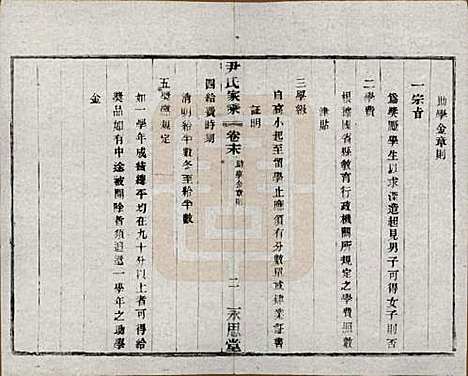 助學金章則
一宗旨
為獎勵學生以求深造起見男子可得女子則否
二學費
根據國省縣教育行政機關所規定之學費照數
津貼
三學級
自高小起至留學止應須有分數單或肄業証書
証明
尹氏家乘
卷末
助學金章則
二
永思堂
四給費時期
清明給半數冬至給半數
五獎懲規定
如一學年成績總平均在九十分以上者可得給
獎品如有中途被開除者須追還一學年之助學
金